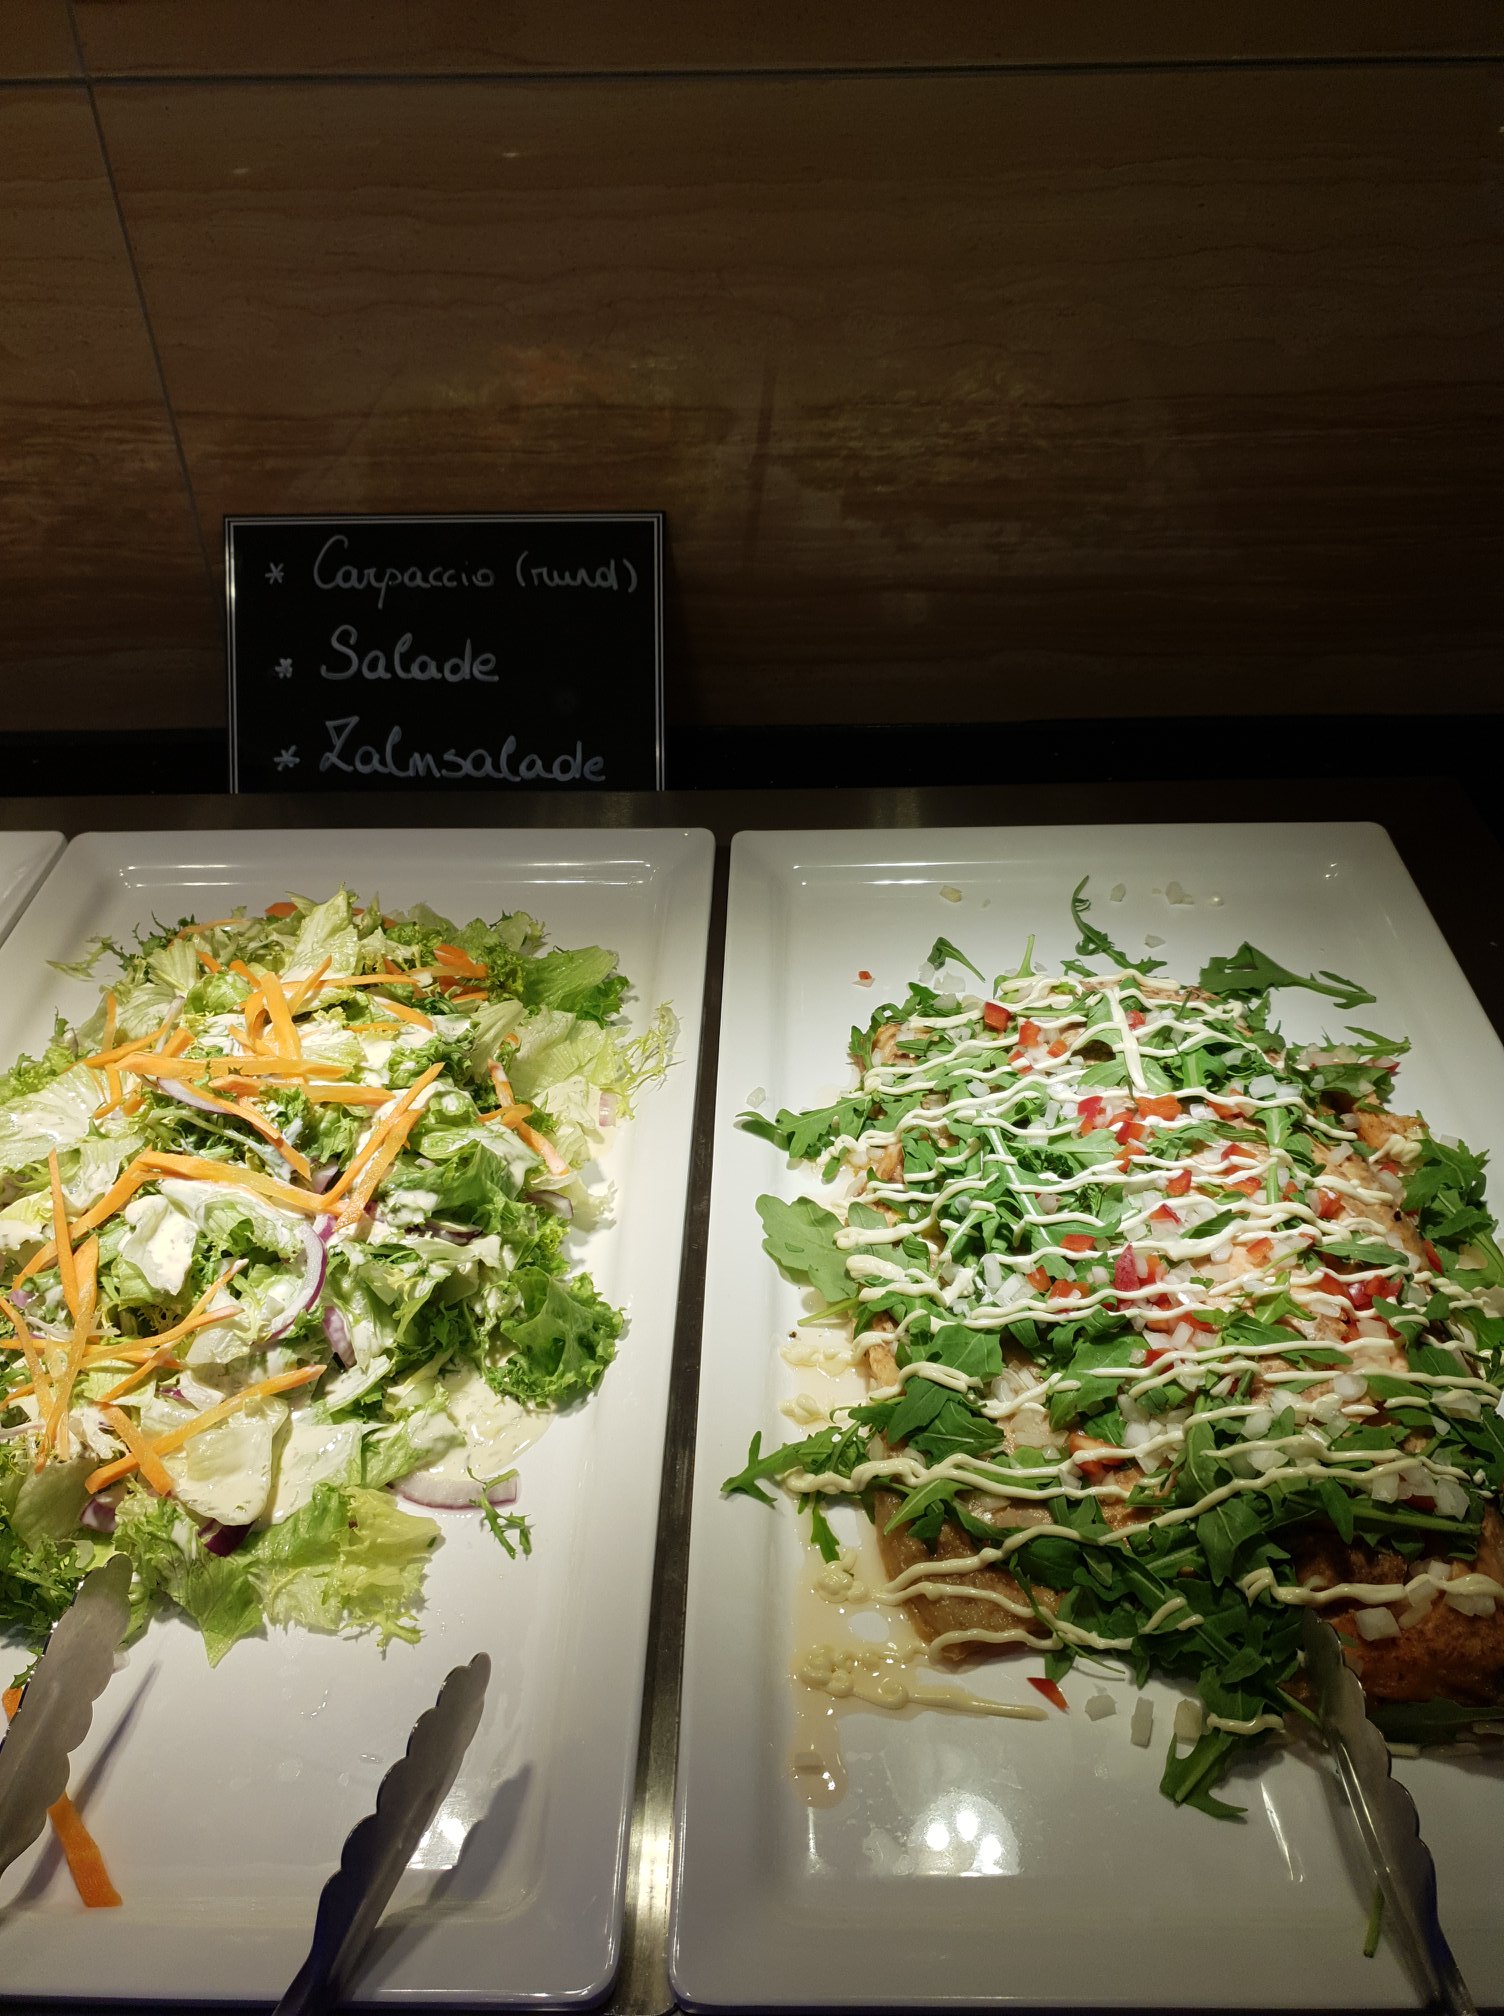 * Carpaccio (rund)
* Salade
* Zalmsalade